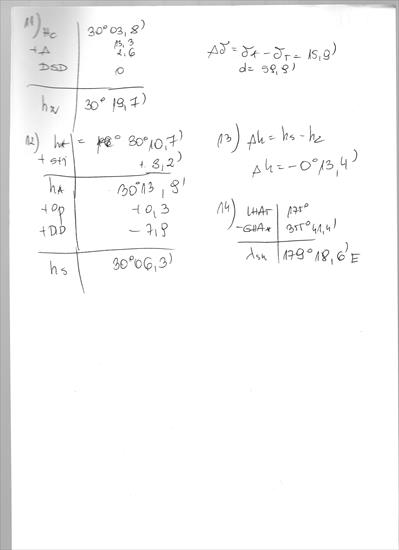 11) Hc 30° 03,8'
+Δ 13,3
2,6
DSD 0
hr 30° 19,7'
Δδ = δA - δT = 15,9'
d = 59,9'
12) hA = 30° 10,7'
+ 3,2'
hA 30° 13,9'
+Op +0,3
+DD -7,9
hs 30° 06,3'
13) Δh = hs - hz
Δh = -0° 13,4'
14) LHAT 175°
-GHA* 355° 41,4'
λsh 179° 18,6' E